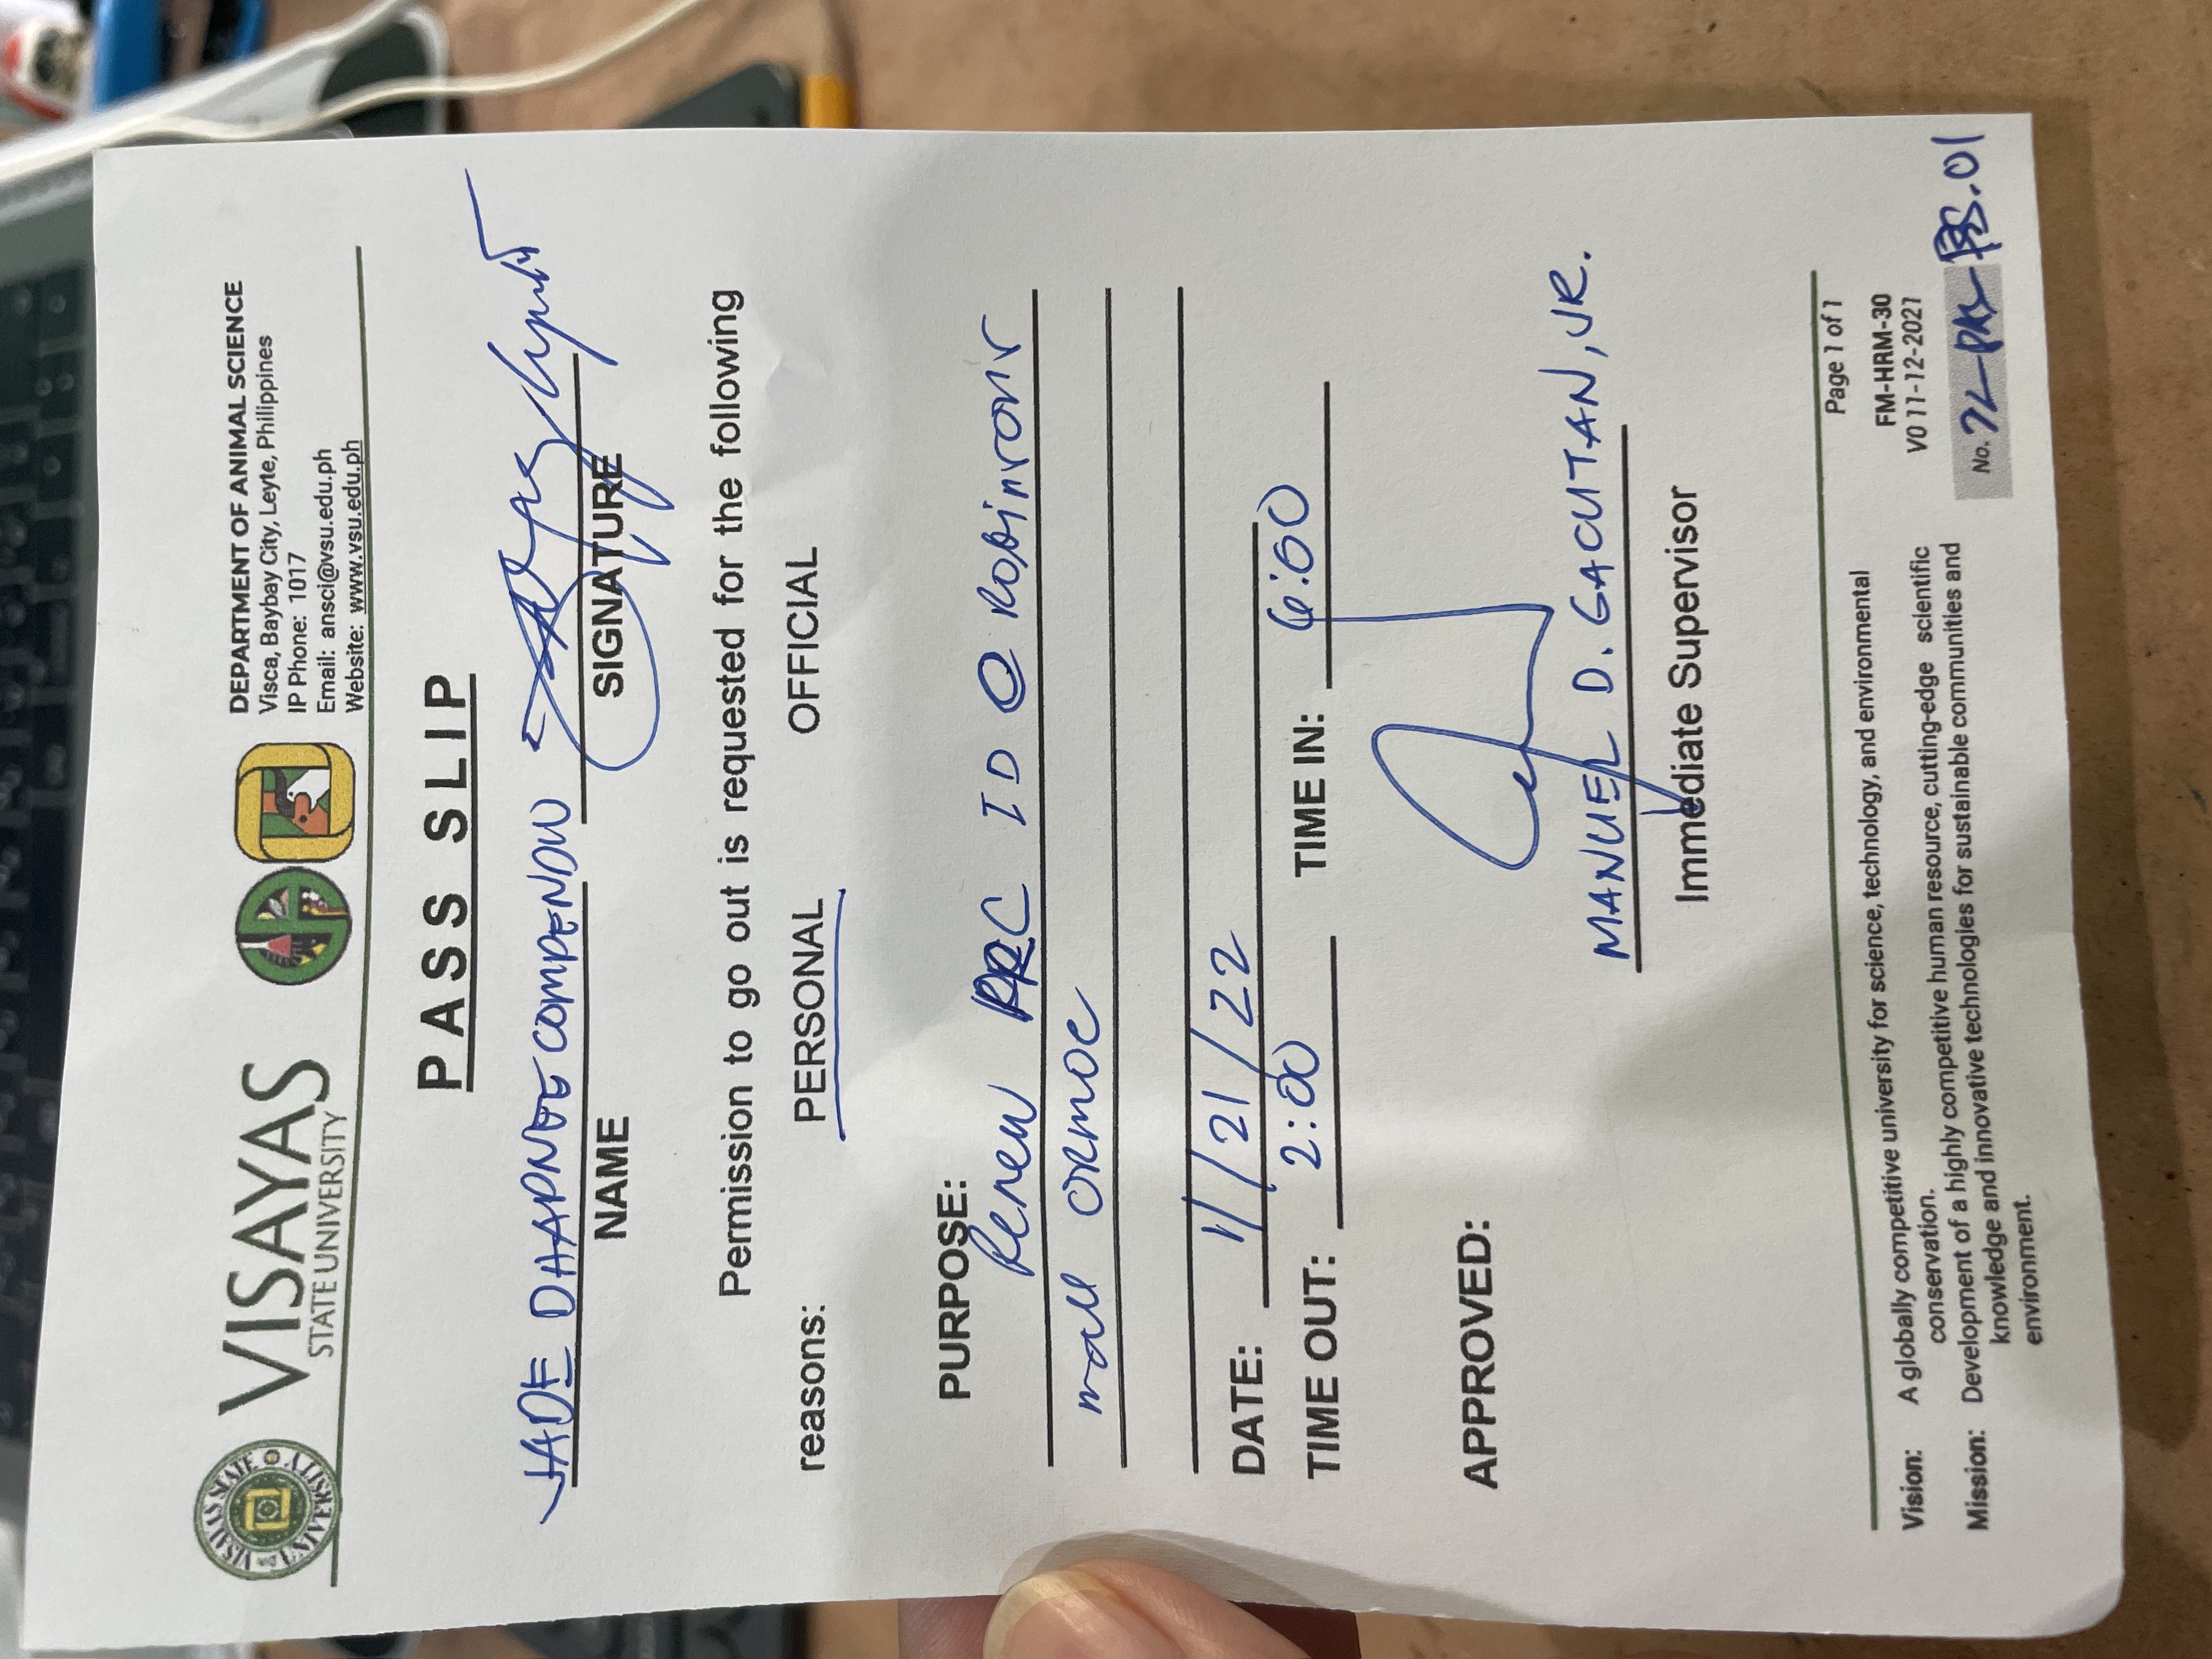 VISAYAS
STATE UNIVERSITY
DEPARTMENT OF ANIMAL SCIENCE
Visca, Baybay City, Leyte, Philippines
IP Phone: 1017
Email: ansci@vsu.edu.ph
Website: www.vsu.edu.ph
PASS SLIP
JADE DHAPNEE COMPENDIO
NAME
SIGNATURE
Permission to go out is requested for the following
reasons: PERSONAL OFFICIAL
PURPOSE:
Renew PRC ID @ Robinsons
mall ormoc
DATE: 1/21/22
TIME OUT: 2:00 TIME IN: 6:00
APPROVED:
MANUEL D. GACUTAN, JR.
Immediate Supervisor
Page 1 of 1
FM-HRM-30
V0 11-12-2021
No.
Vision: A globally competitive university for science, technology, and environmental
conservation.
Mission: Development of a highly competitive human resource, cutting-edge scientific
knowledge and innovative technologies for sustainable communities and
environment.